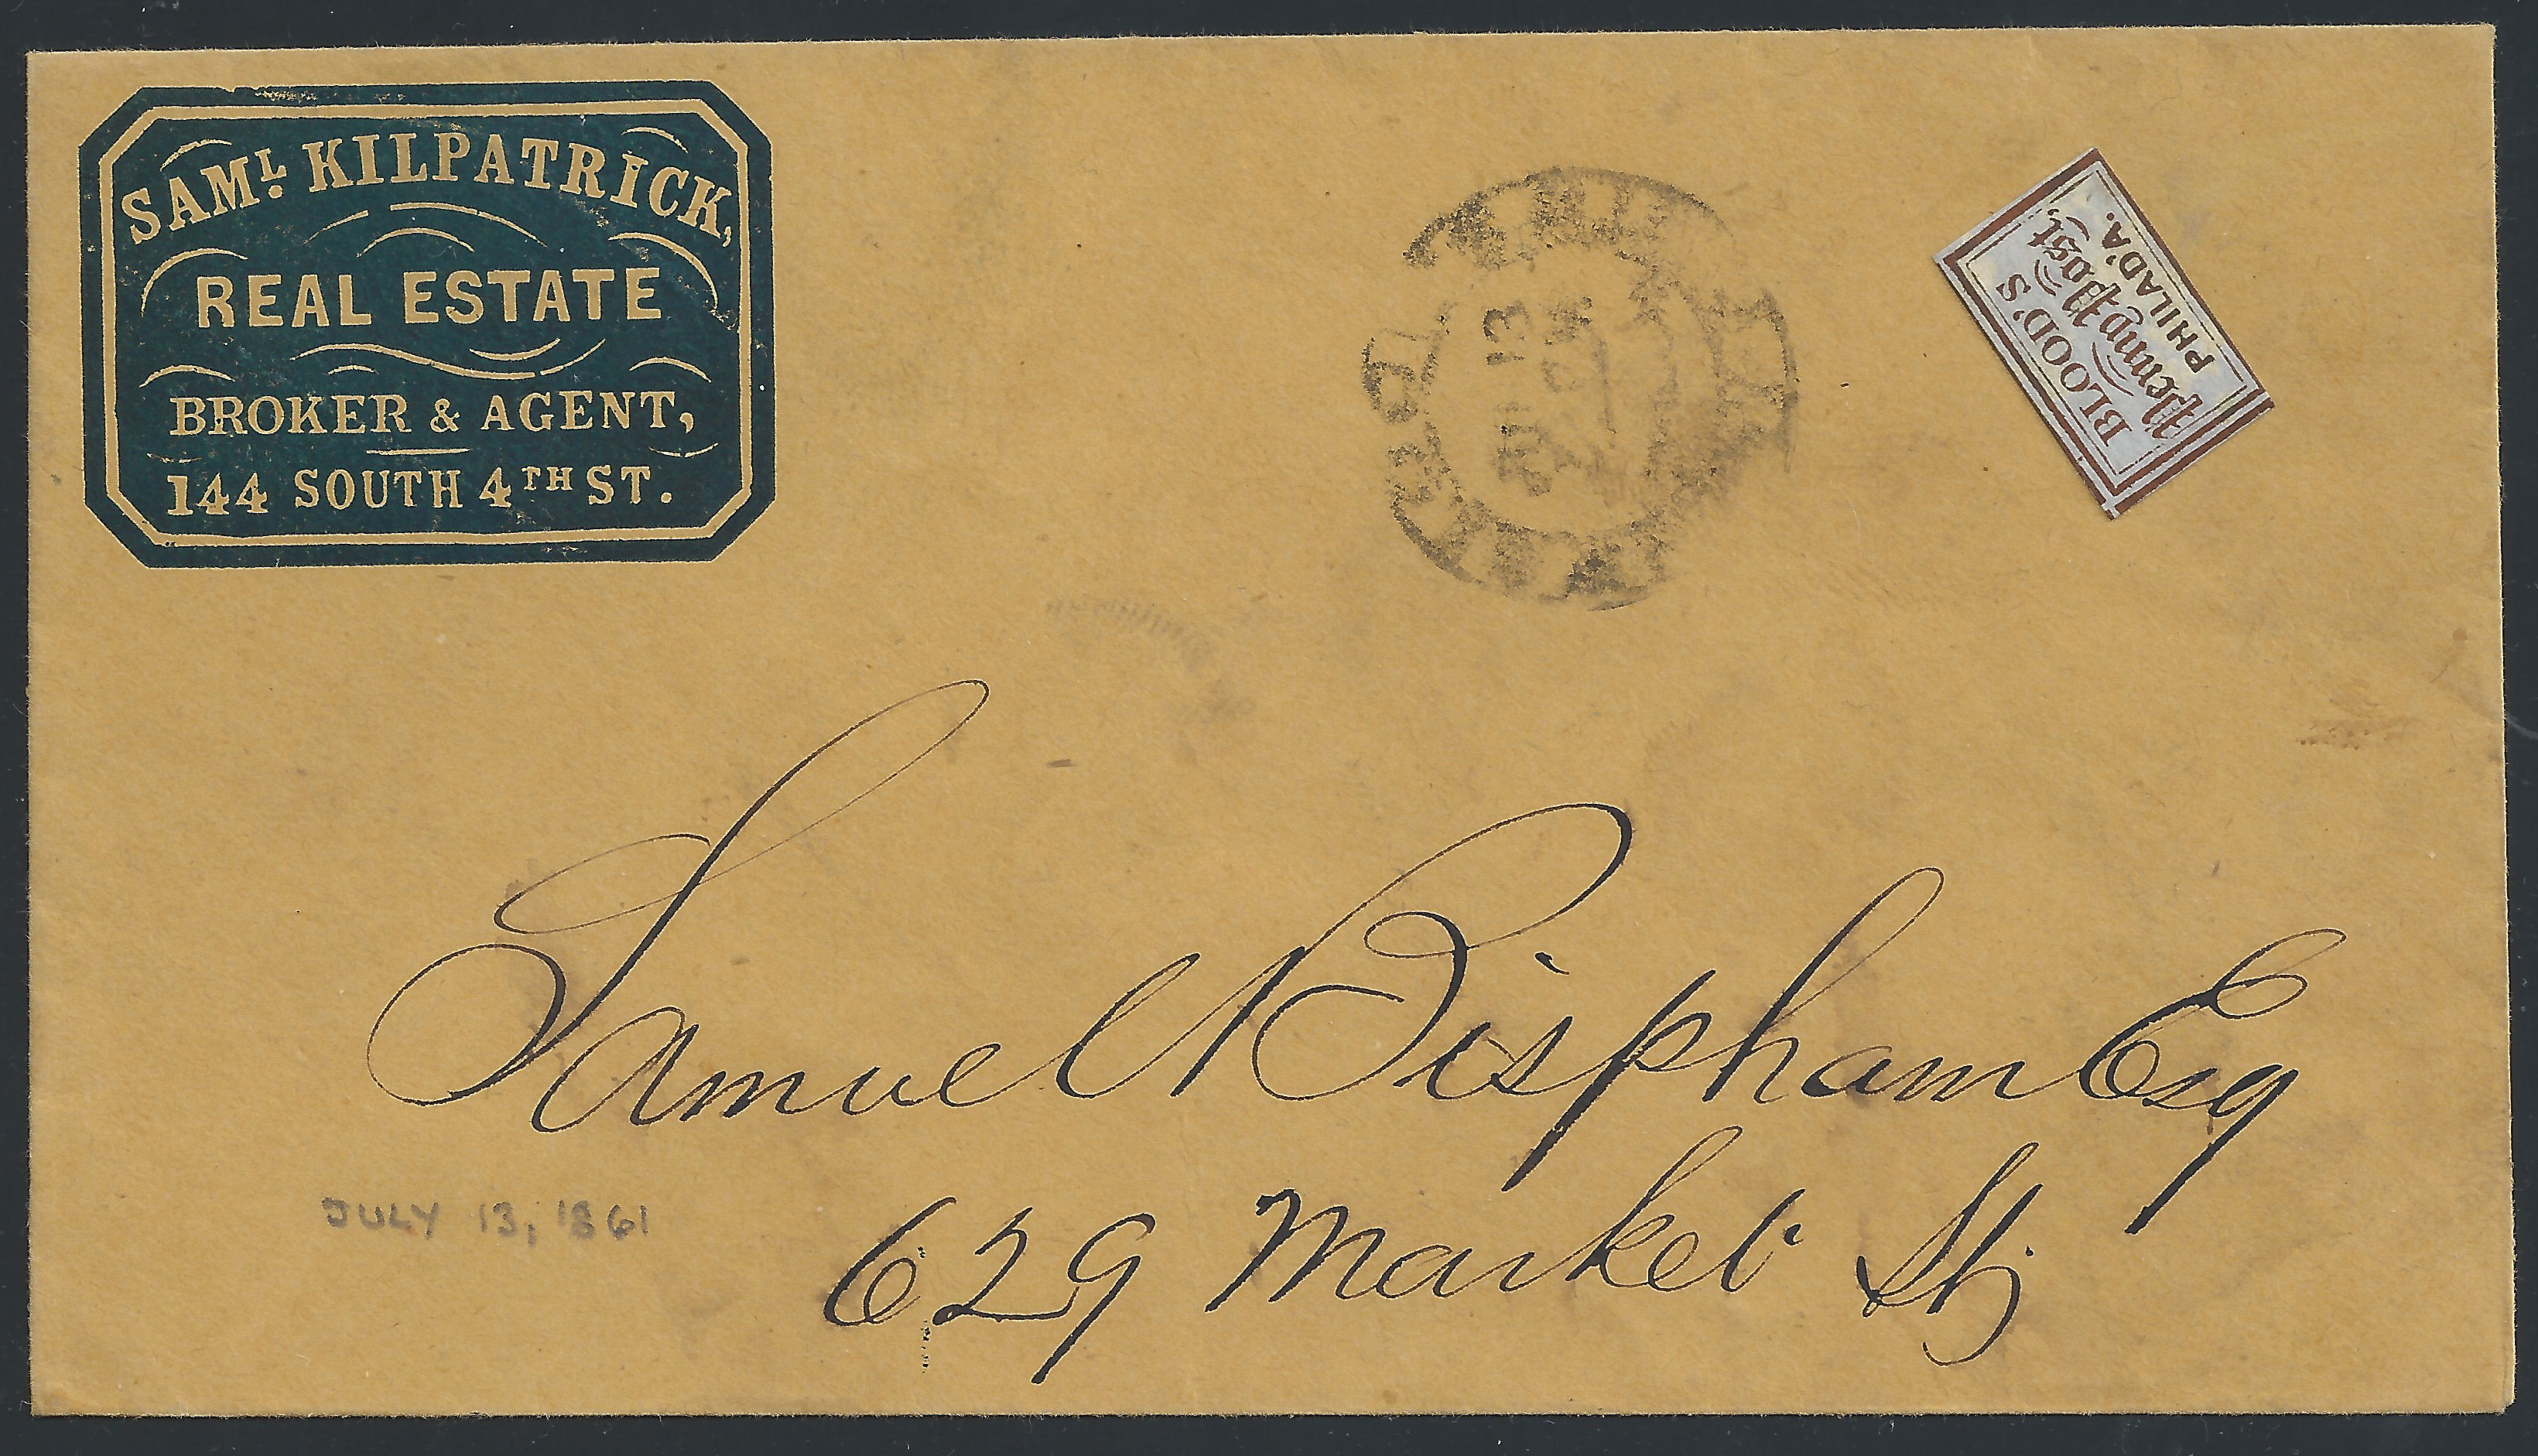 SAML. KILPATRICK,
REAL ESTATE
BROKER & AGENT,
144 SOUTH 4TH ST.
JUL 13
BLOOD'S
Penny Post,
PHILAD'A.
Samuel Bispham Esq
629 Market St;
JULY 13, 1861